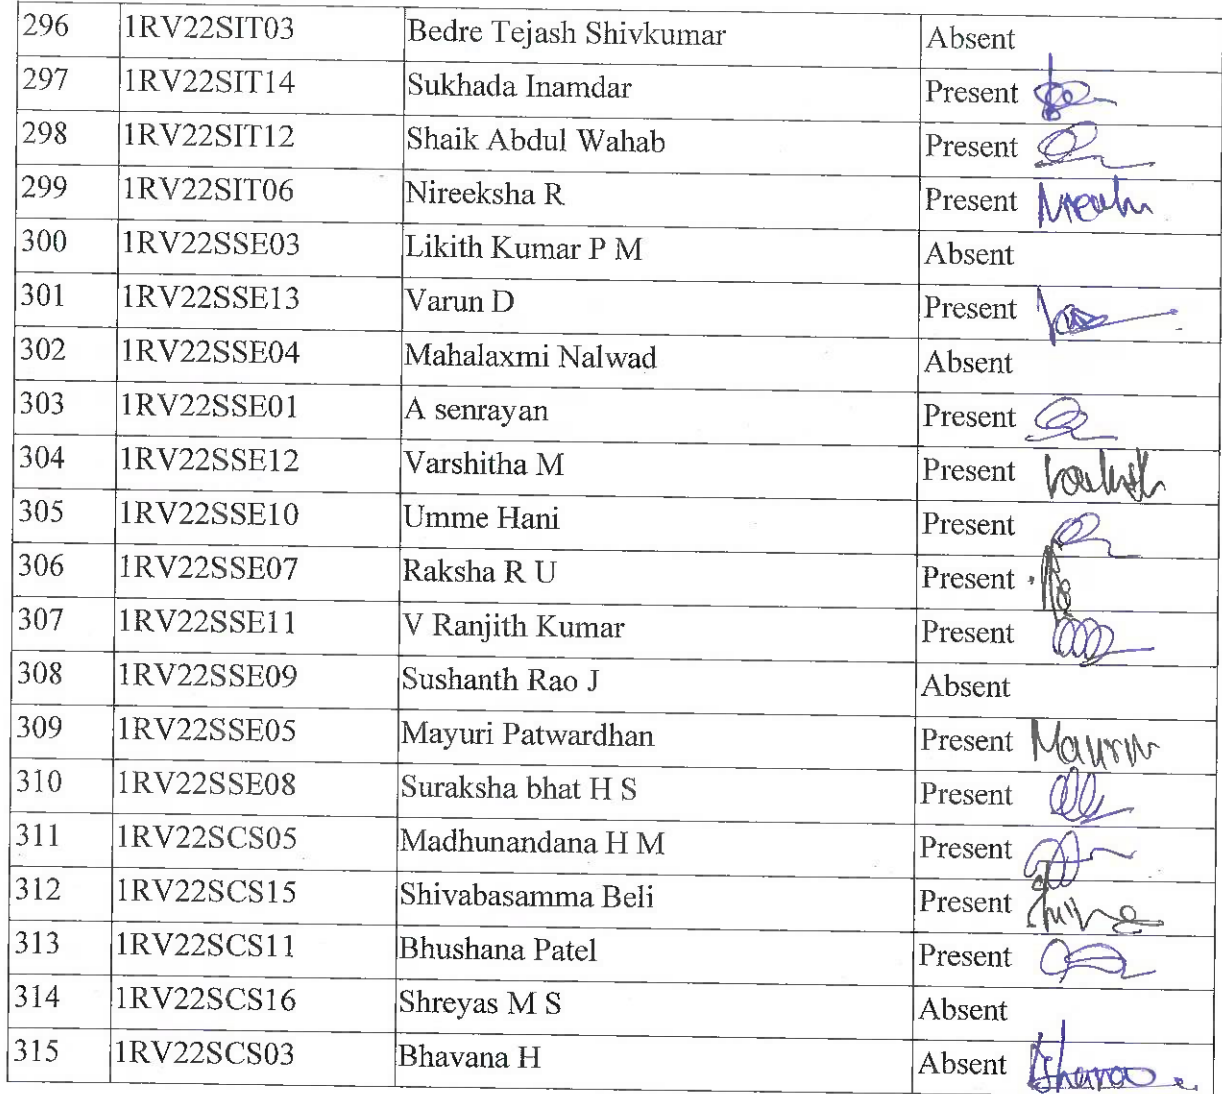 296 1RV22SIT03 Bedre Tejash Shivkumar Absent
297 1RV22SIT14 Sukhada Inamdar Present
298 1RV22SIT12 Shaik Abdul Wahab Present
299 1RV22SIT06 Nireeksha R Present
300 1RV22SSE03 Likith Kumar P M Absent
301 1RV22SSE13 Varun D Present
302 1RV22SSE04 Mahalaxmi Nalwad Absent
303 1RV22SSE01 A senrayan Present
304 1RV22SSE12 Varshitha M Present
305 1RV22SSE10 Umme Hani Present
306 1RV22SSE07 Raksha R U Present
307 1RV22SSE11 V Ranjith Kumar Present
308 1RV22SSE09 Sushanth Rao J Absent
309 1RV22SSE05 Mayuri Patwardhan Present
310 1RV22SSE08 Suraksha bhat H S Present
311 1RV22SCS05 Madhunandana H M Present
312 1RV22SCS15 Shivabasamma Beli Present
313 1RV22SCS11 Bhushana Patel Present
314 1RV22SCS16 Shreyas M S Absent
315 1RV22SCS03 Bhavana H Absent